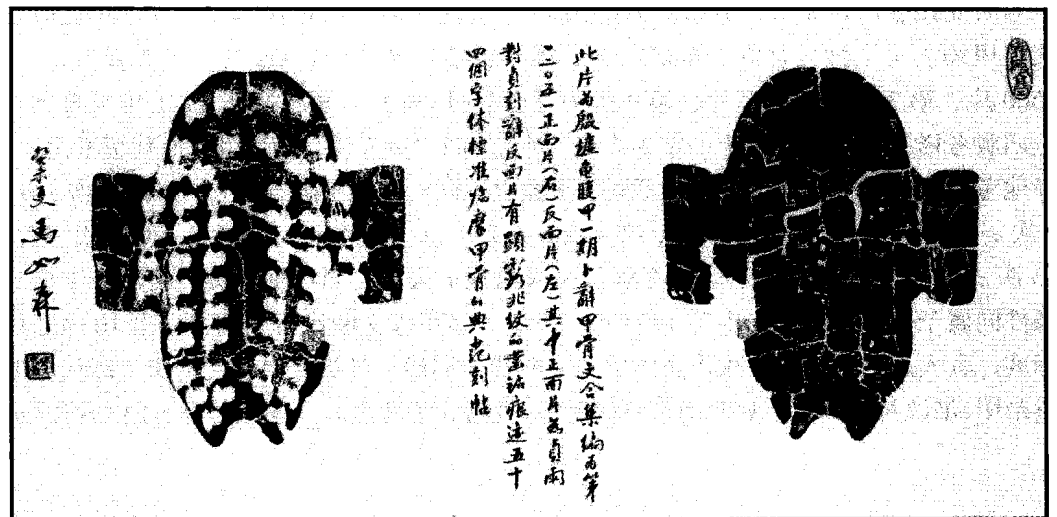 此片為殷墟龜腹甲一期卜辭甲骨文合集編為第
一二〇五一正面片(右)反面片(左)其中正面片為貞雨
對貞刻辭反面片有顯影兆紋的鑿鉆痕迹五十
四個字体標准臨摹甲骨的典范刻帖
癸未夏馬如森